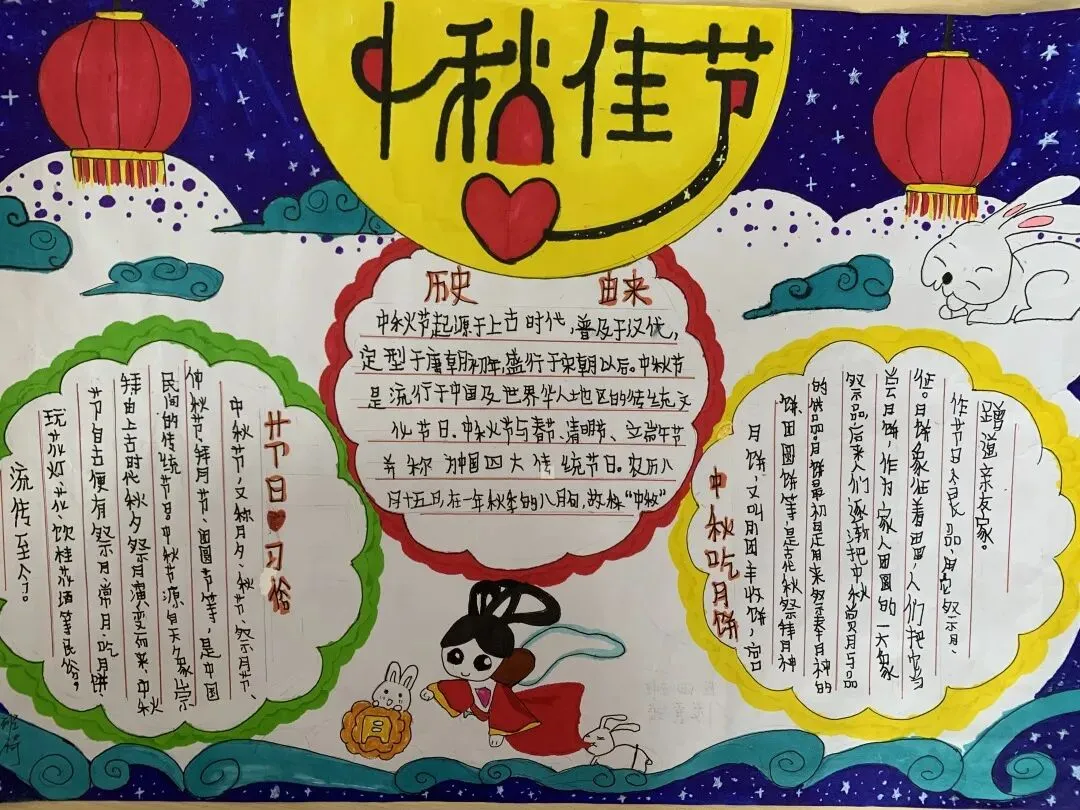 中秋佳节
历史 由来
中秋节起源于上古时代,普及于汉代,
定型于唐朝初年,盛行于宋朝以后。中秋节
是流行于中国及世界华人地区的传统文
化节日。中秋节与春节、清明节、立端午节
并称为中国四大传统节日。农历八
月十五日,在一年秋季的八月旬,故称“中秋”
节日习俗
中秋节,又称月夕、秋节、祭月节、
仲秋节、拜月节、团圆节等,是中国
民间的传统节日。中秋节源自天象崇
拜由上古时代秋夕祭月演变而来,中秋
节自古便有祭月、常月、吃月饼、
玩花灯、花、饮桂花酒等民俗。
流传至今。
中秋吃月饼
月饼,又叫月团、丰收饼、宫
饼、团圆饼等,是古代中秋祭拜月神
的供品。月饼最初是用来祭奉月神的
祭品,后来人们逐渐把中秋赏月与品
尝月饼,作为家人团圆的一大象
征。月饼象征着团圆,人们把它当
作节日食品,用它祭月、
赠送亲友家。
月